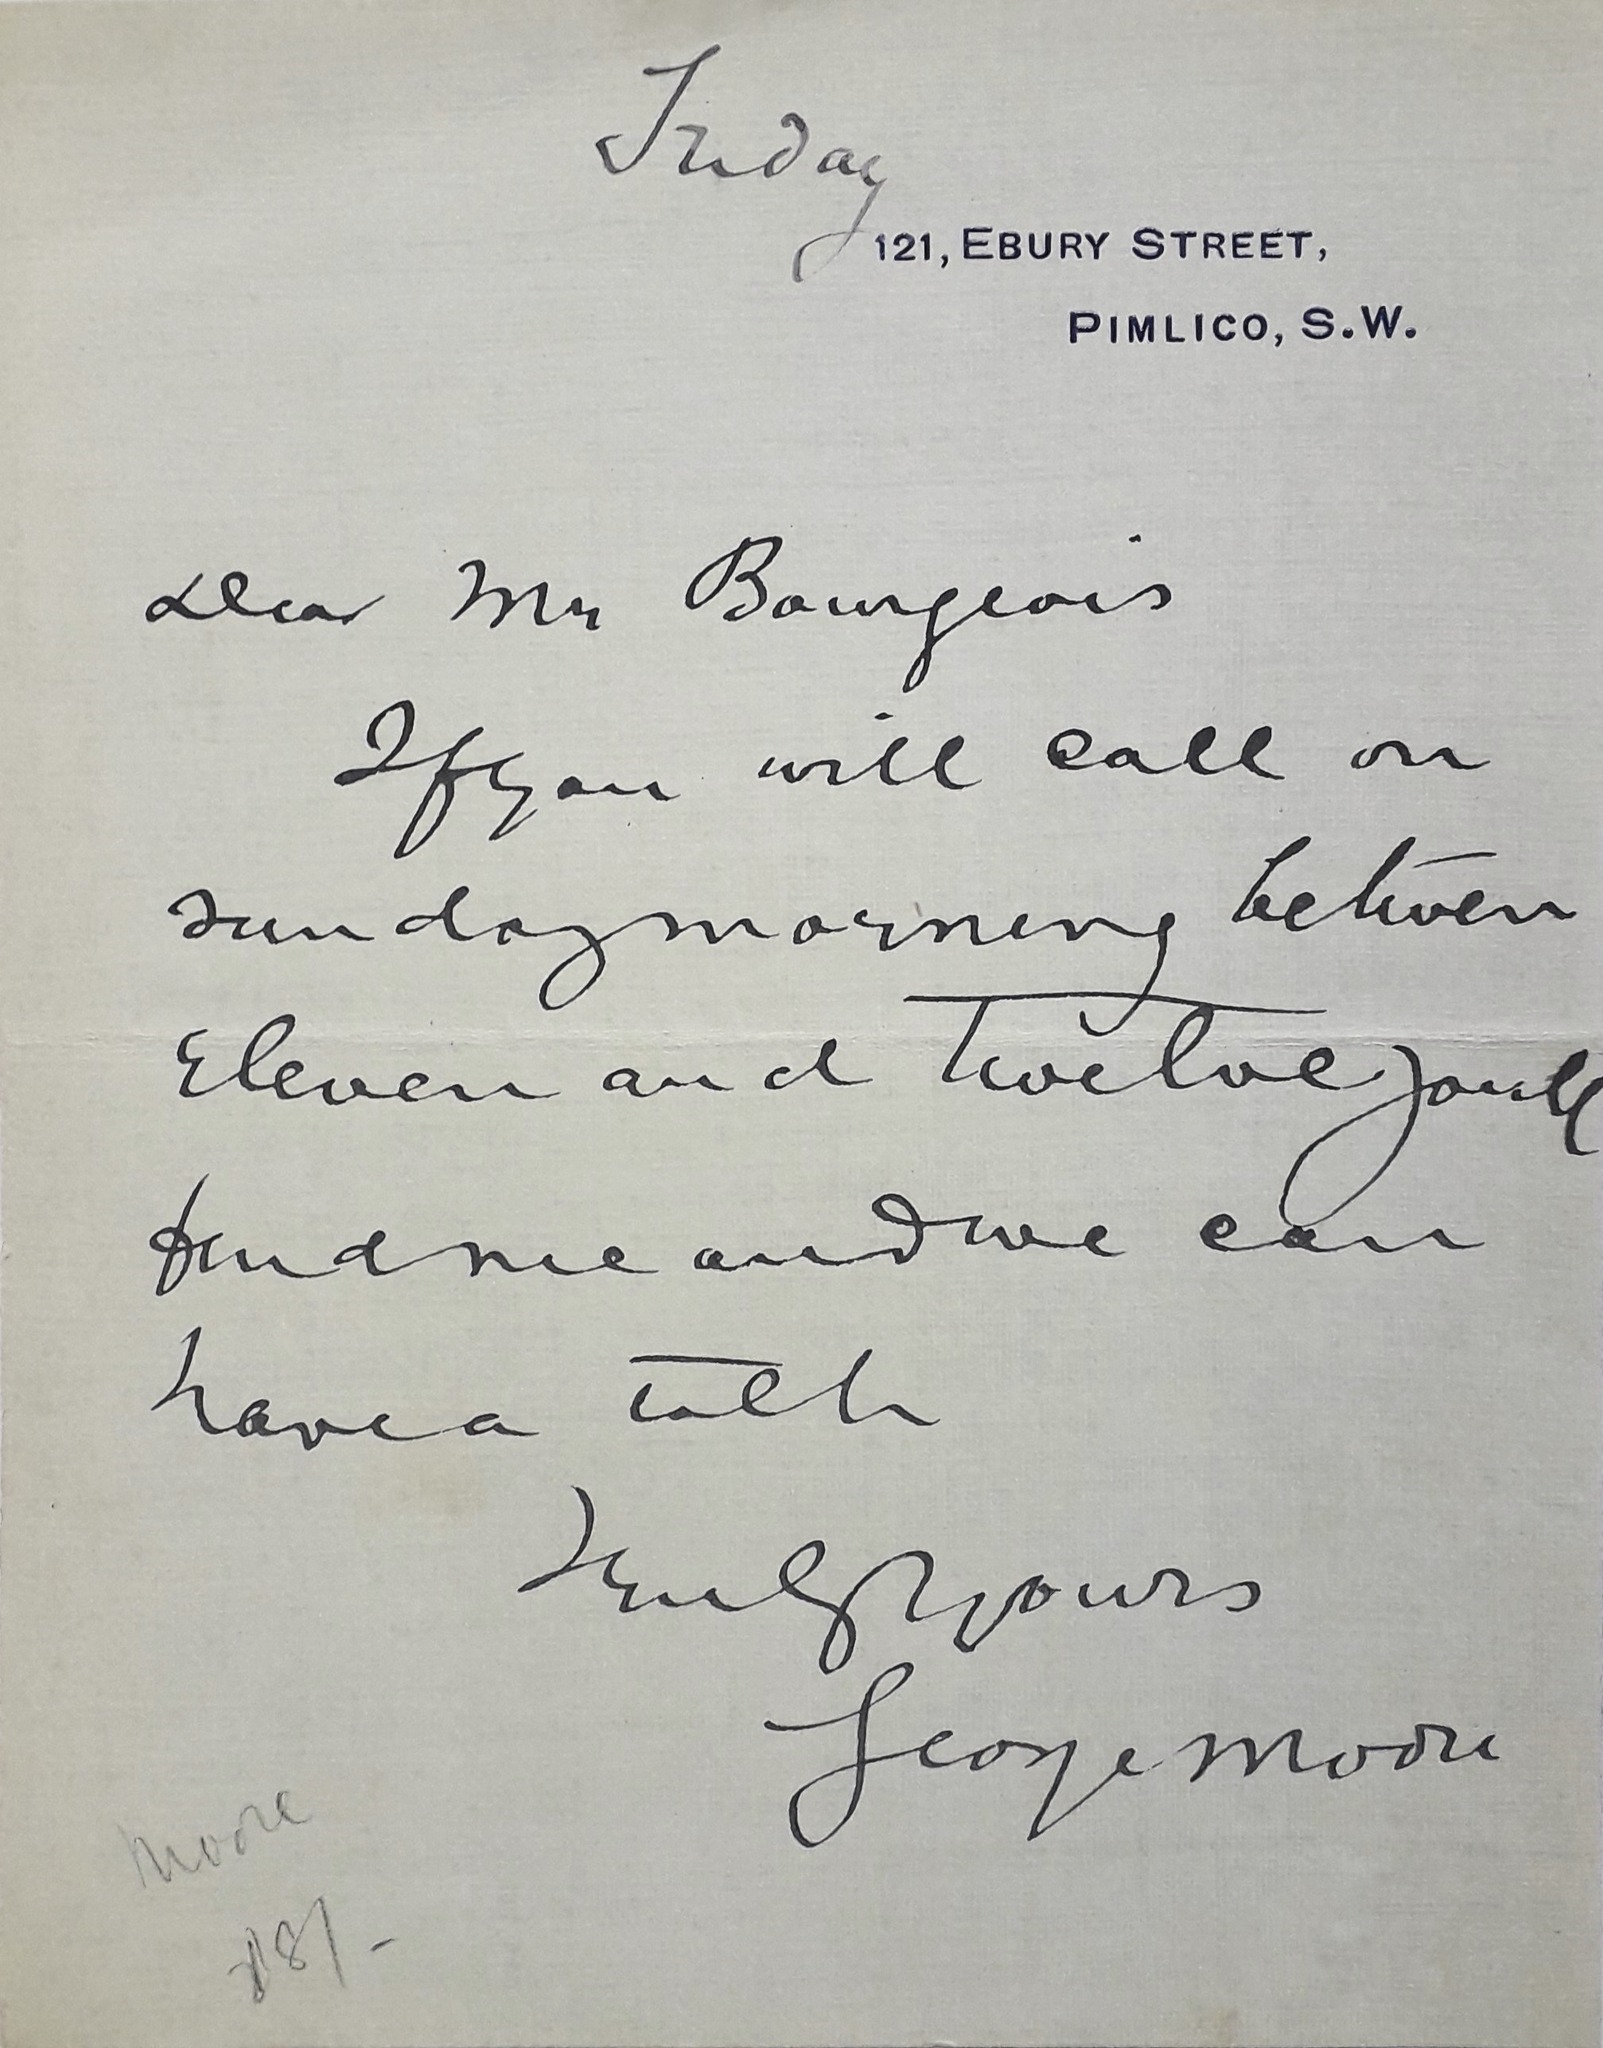 Friday
121, EBURY STREET,
PIMLICO, S.W.
Dear Mr Bourgeois
If you will call on
sunday morning between
Eleven and twelve youll
find me and we can
have a talk
Truly yours
George Moore
Moore
18/-